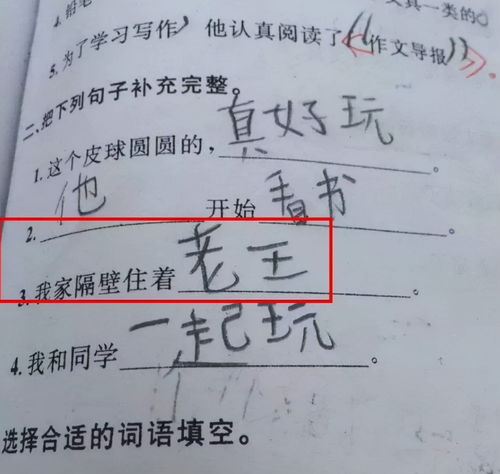 4.铅笔
文具一类的。
5.为了学习写作,他认真阅读了《作文导报》。
二、把下列句子补充完整。
1.这个皮球圆圆的,真好玩。
2.他开始看书。
3.我家隔壁住着老王。
4.我和同学一起玩。
选择合适的词语填空。